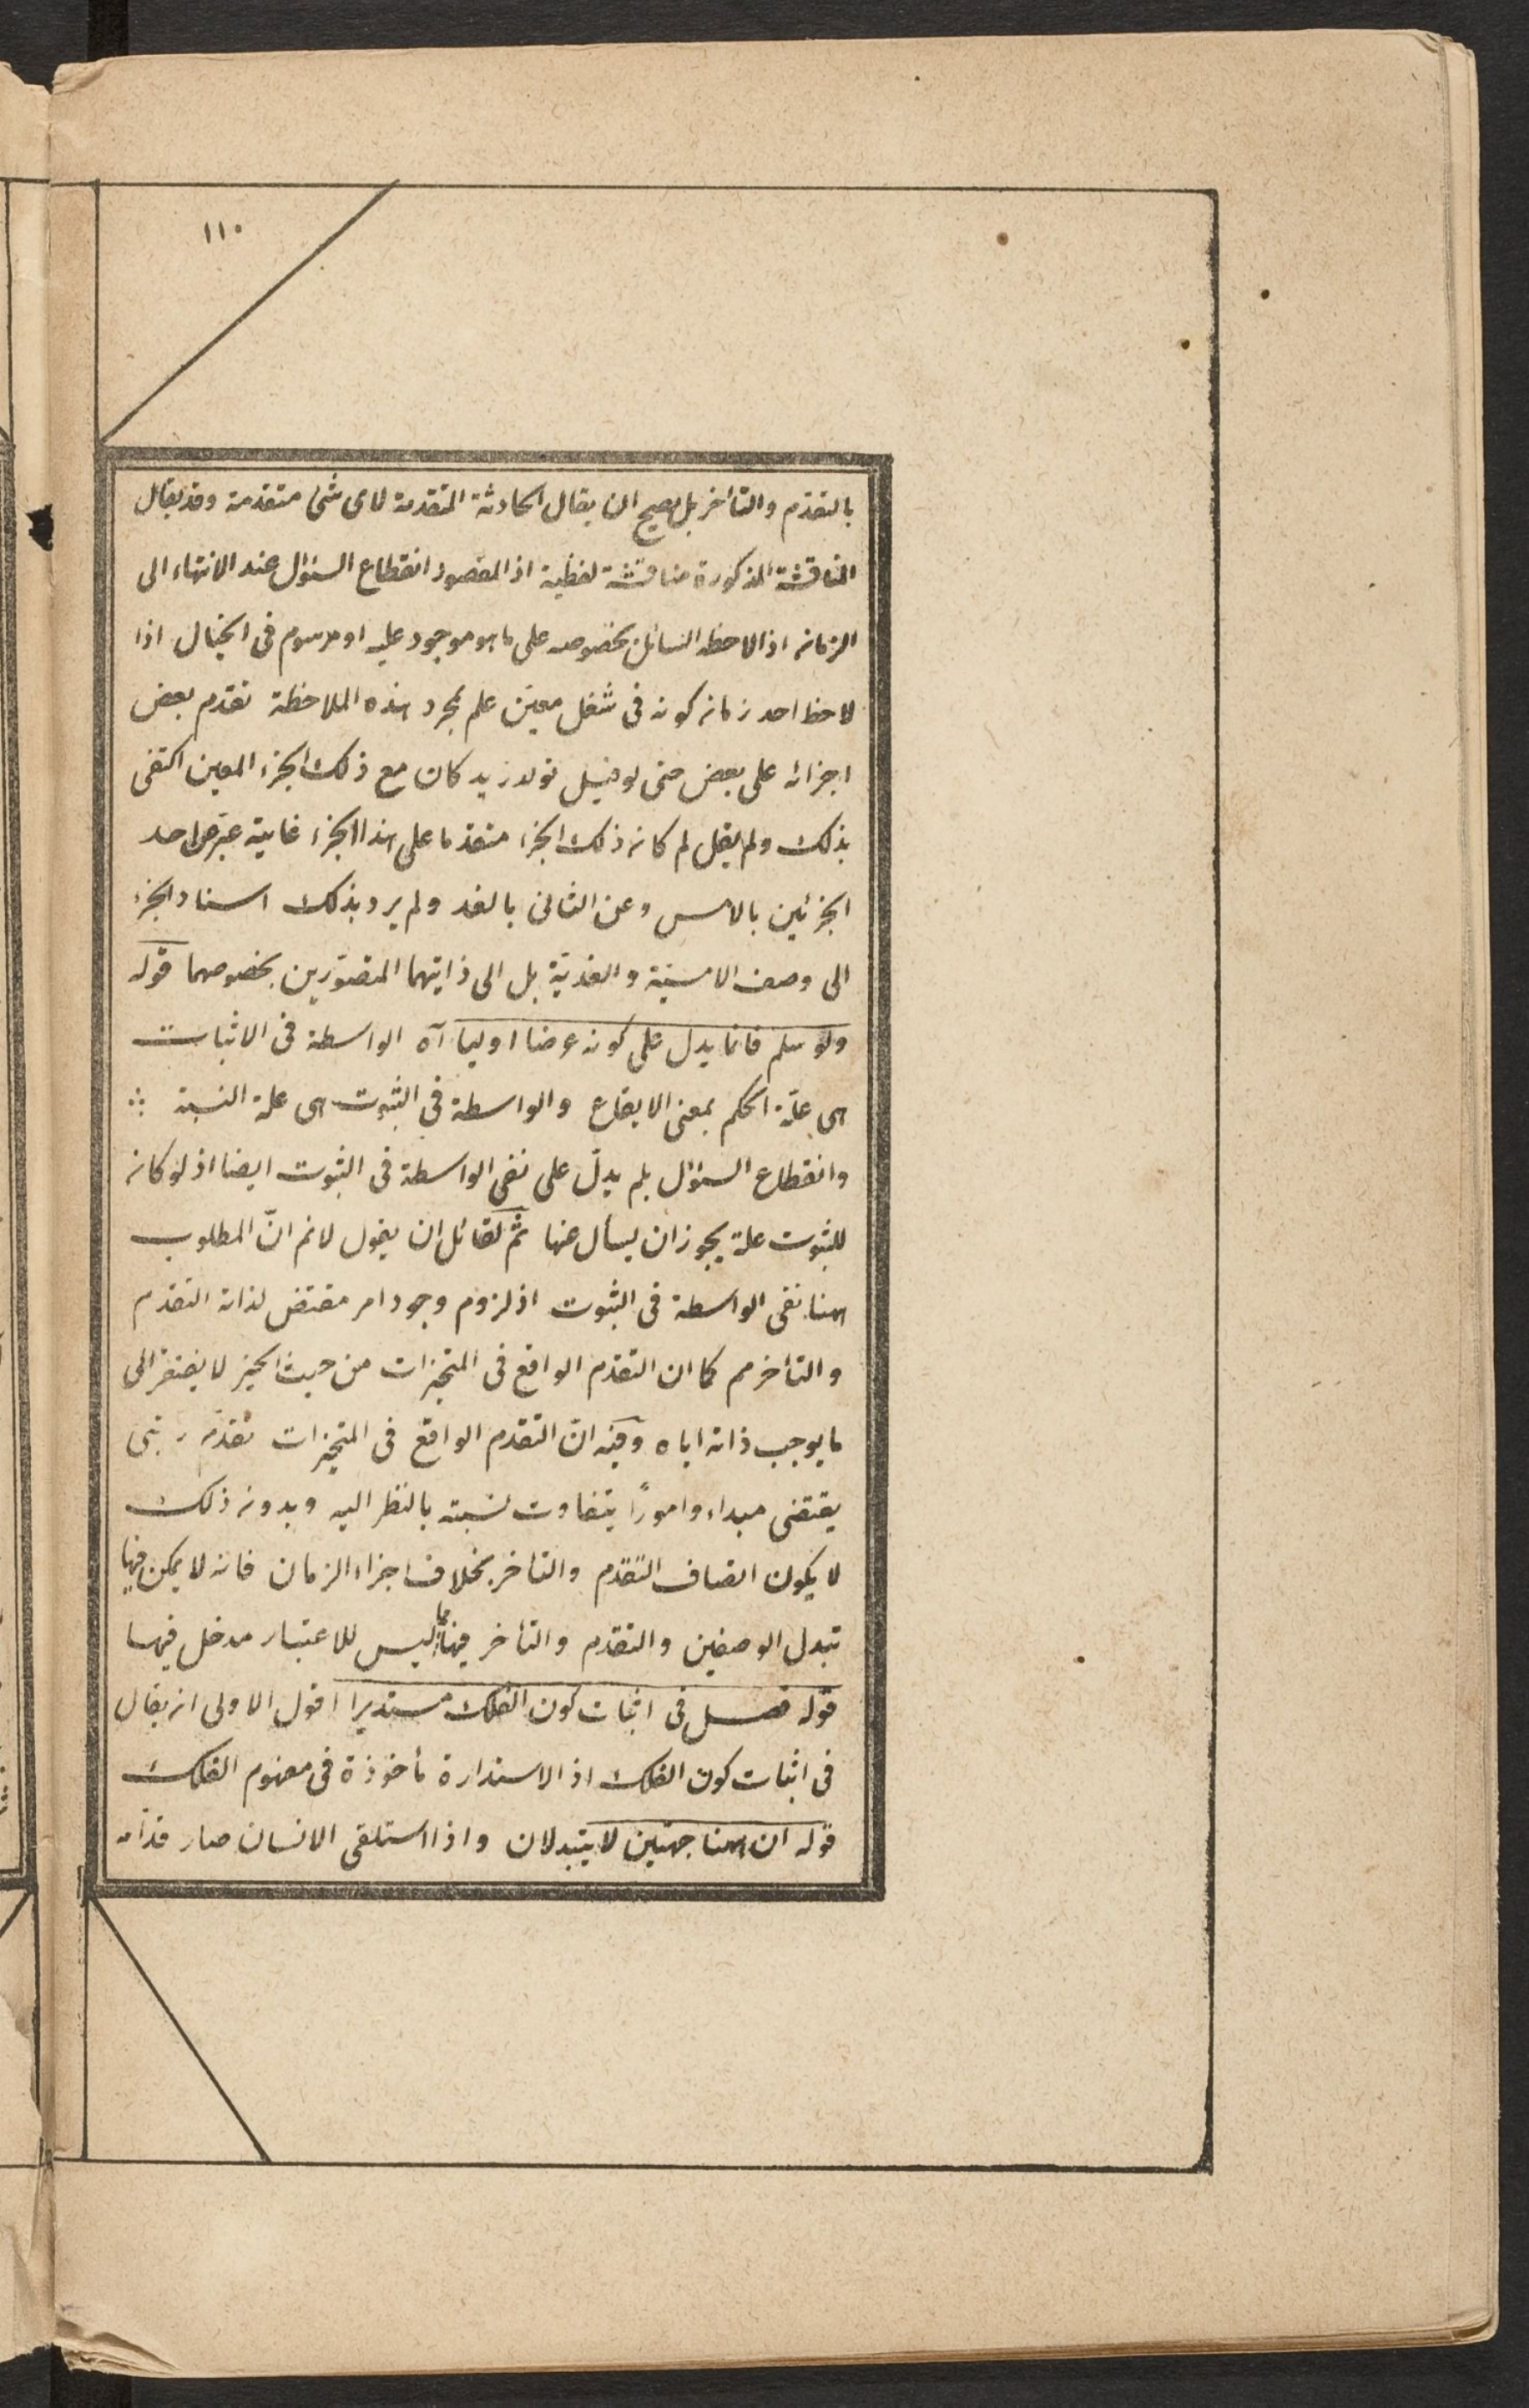 ١١٠
بالتقدم والتأخر بل يصح ان يقال الحادثة المتقدمة لای شئ متقدمة وقد يقال
المناقشة المذكورة مناقشة لفظية اذ المقصود انقطاع السئوال عند الانتهاء الی
الزمان اذا لاحظه السائل بخصوصه علی ما هو موجود عليه او مرسوم فی الخيال اذا
لاحظ احد زمان كونه فی شغل معين علم بمجرد هذه الملاحظة تقدم بعض
اجزائه علی بعض حتی لو قيل تولد زيد كان مع ذلك الجزء المعين اكتفی
بذلك ولم يقل لم كان ذلك الجزء متقدما علی هذا الجزء غايته عبر عن احد
الجزئين بالامس وعن الثانی بالغد ولم يرد بذلك اسناد الجزء
الی وصف الامسية والغدية بل الی ذاتيهما المتصورين بخصوصهما قوله
ولو سلم فانما يدل علی كونه عرضا اوليا آه الواسطة فی الاثبات
هی علة الحكم بمعنی الايقاع والواسطة فی الثبوت هی علة النسبة ∴
وانقطاع السئوال بلم يدلّ علی نفی الواسطة فی الثبوت ايضا اذ لو كان
للثبوت علة يجوز ان يسأل عنها ثم لقائل ان يقول لانم انّ المطلوب
هنا نفی الواسطة فی الثبوت اذ لزوم وجود امر مقتض لذاته التقدم
والتأخر مم كما ان التقدم الواقع فی المتحيزات من حيث الحيز لا يفتقر الی
ما يوجب ذاته اياه وفيه انّ التقدم الواقع فی المتحيزات تقدم رتبی
يقتضی مبداء وامورًا يتفاوت نسبته بالنظر اليه وبدون ذلك
لا يكون اتصاف التقدم والتأخر بخلاف اجزاء الزمان فانه لا يمكن فيها
تبدل الوصفين والتقدم والتأخر فيها مما ليس للاعتبار مدخل فيهما
قوله فصل فی اثبات كون الفلك مستديرا اقول الاولی ان يقال
فی اثبات كون الفلك اذ الاستدارة مأخوذة فی مفهوم الفلك
قوله ان هنا جهتين لا يتبدلان واذا استلقی الانسان صار قدامه